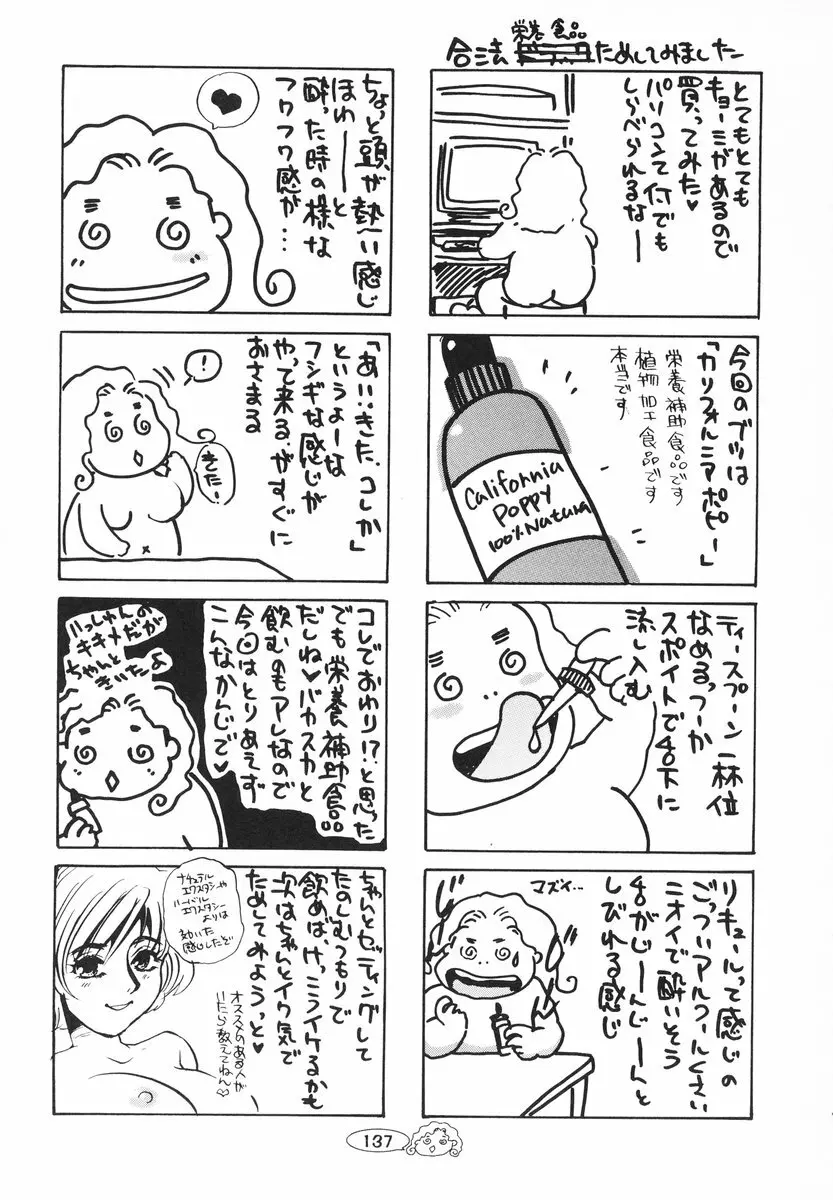 栄養食品
合法ドラッグためしてみました
とてもとても
キョーミがあるので
買ってみた♥
パソコンて何でも
しらべられるなー
今回のブツは
「カリフォルニアポピー」
栄養補助食品です
植物加工食品です
本当です
California
Poppy
100% Natural
ティースプーン一杯位
なめる。つーか
スポイトで舌下に
流し込む
リキュールって感じの
ごっついアルコールくさい
ニオイで酔いそう
舌がじーんじーんと
しびれる感じ
マズイ…
ちょっと頭が熱〜い感じ
ほわーーっと
酔った時の様な
フワフワ感が…
「あ!!きた、コレか」
というよーな
フシギな感じが
やって来る、がすぐに
おさまる
!
きたー
コレでおわり!?と思った
でも栄養補助食品
だしね♥バカスカと
飲むのもアレなので
今回はとりあえず
こんなかんじで♥
いっしゅんの
キキメだが
ちゃんと
きいたよ
ちゃんとセッティングして
たのしむつもりで
飲めば、けっこうイケるかも
次はちゃんとイク気で
ためしてみようっと♥
ナチュラル
エクスタシーや
ハーバル
エクスタシー
よりは
効いた
感じしたぞ
オススメのある人が
いたら教えてねん♡
137